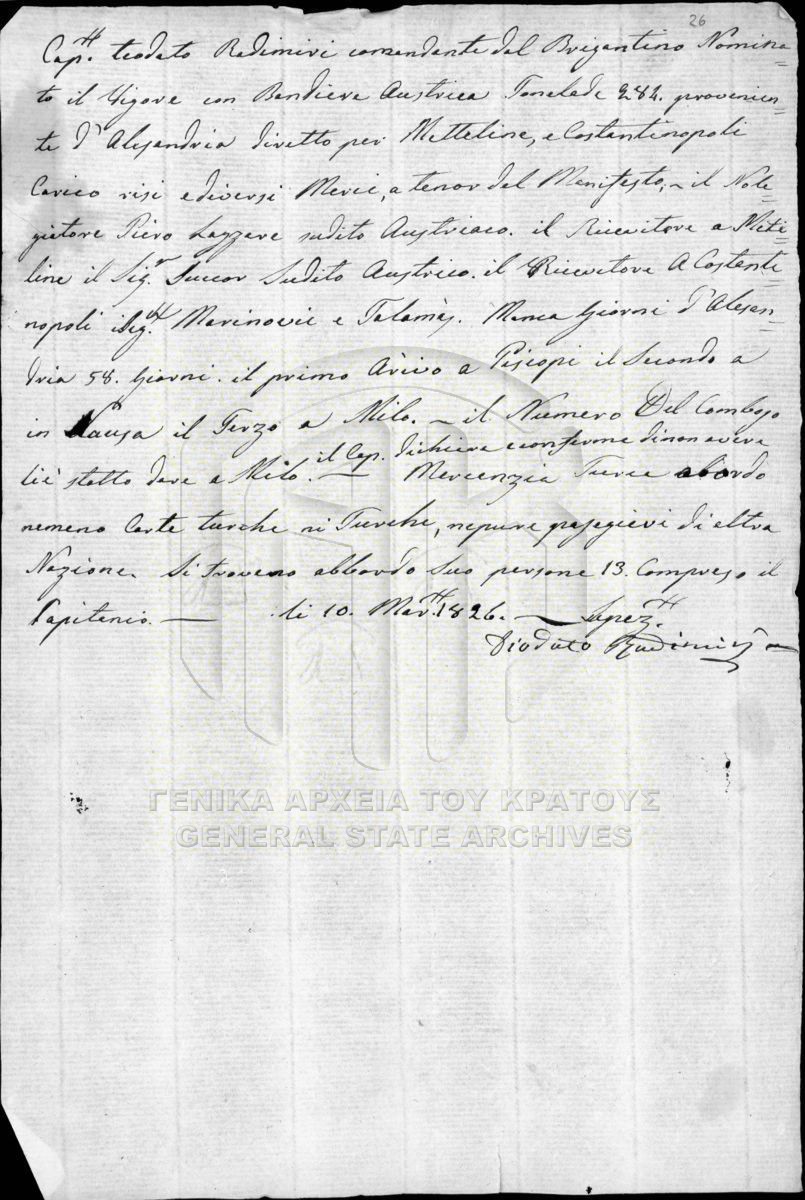 26
Cap.n teodato Radimiri comandante dal Brigantino Nomina=
to il Vigore con Bandiera Austrica Tonelade 284. provenien=
te d'Alesandria diretto per Metteline, e Costantinopoli
Carico risi e diversi Merci, a tenor del Manifesto, ~ il Nole=
giatore Piero Lazzare sudito Austriaco. il Ricevitore a Meti=
line il Sig.r Succor Sudito Austrico. il Ricevitore A Costanti=
nopoli i Sig.ri Marinovic e Talamas. Manca Giorni d'Alesan=
dria 58. Giorni. il primo Arivo a Piscopi il Secondo a
in il Terzo a Milo. ~ il Numero Del Combojo
il Cap. dichiara e conferma di non avere
li è statto dare a Milo. — Mercanzia Turca abordo
nemeno Carte turche ni Turchi, nepure pasegieri di altra
Nazione. Si trovano abbordo Suo persone 13. Compreso il
Capitanio. — li 10. Mar. 1826. —
Diodato Radimiri
ΓΕΝΙΚΑ ΑΡΧΕΙΑ ΤΟΥ ΚΡΑΤΟΥΣ
GENERAL STATE ARCHIVES